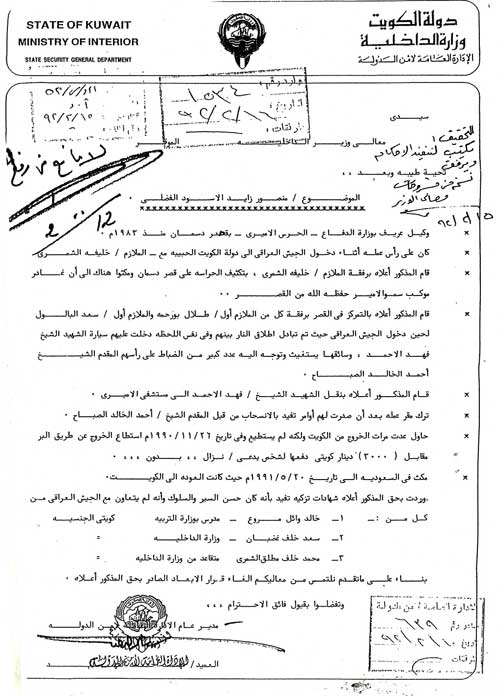 STATE OF KUWAIT
MINISTRY OF INTERIOR
STATE SECURITY GENERAL DEPARTMENT
دولة الكويت
وزارة الداخلية
الإدارة العامة لأمن الدولة
وارد رقم
١٥٣٤
التاريخ
٩٢/٢/١٦
مرفقات
سيدي
معالي وزير الداخلية الموقر
تحية طيبة وبعد ،،
لا مانع من رفع
الموضوع / منصور زايد الاسود الفضلي
× وكيل عريف بوزارة الدفاع ـ الحرس الاميري ـ بقصر دسمان منذ ١٩٨٣م
× كان على رأس عمله أثناء دخول الجيش العراقي الى دولة الكويت الحبيبه مع ـ الملازم / خليفه الشمرى
× قام المذكور أعلاه برفقة الملازم / خليفه الشمرى ، بتكثيف الحراسه على قصر دسمان ومكثوا هناك الى أن غادر
موكب سمو الامير حفظه الله من القصر ٠٠
× قام المذكور أعلاه بالتمركز في القصر برفقة كل من الملازم أول / طلال بورحمه والملازم أول / سعد البالول
لحين دخول الجيش العراقي حيث تم تبادل اطلاق النار بينهم وفى نفس اللحظه دخلت عليهم سيارة الشهيد الشيخ
فهد الاحمد ، وسائقها يستغيث وتوجه اليه عدد كبير من الضباط على رأسهم المقدم الشيخ
أحمد الخالد الصباح ٠
× قام المذكور أعلاه بنقل الشهيد الشيخ / فهد الاحمد الى مستشفى الاميرى ٠
× ترك مقر عمله بعد أن صدرت لهم أوامر تفيد بالانسحاب من قبل المقدم الشيخ / أحمد الخالد الصباح ٠
× حاول عدت مرات الخروج من الكويت ولكنه لم يستطيع وفى تاريخ ١٩٩٠/١١/٢٦م استطاع الخروج عن طريق البر
مقابل ( ٣٠٠٠ ) دينار كويتى دفعها لشخص يدعى / نزال ٠٠ بدون ،،،
× مكث فى السعوديه الى تاريخ ١٩٩١/٥/٢٠م حيث كانت العوده الى الكويت ٠
× وردت بحق المذكور أعلاه شهادات تزكيه تفيد بأنه كان حسن السير والسلوك وأنه لم يتعاون مع الجيش العراقى من
كل من : ـ ١ـ خالد وائل مروع ـ مدرس بوزارة التربيه كويتى الجنسيه
٢ـ سعد خلف غضبان ـ وزارة الداخليه "
٣ـ محمد خلف مطلق الشمرى متقاعد من وزارة الداخليه "
بناء على ماتقدم نلتمس من معاليكم الغاء قرار الابعاد الصادر بحق المذكور أعلاه ٠
وتفضلوا بقبول فائق الاحترام ،،،
مدير عام الإدارة العامة لأمن الدوله
العميد /
الإدارة العامة لأمن الدولة
صادر رقم
٦٣٩
تاريخ
٩٢/٢/١٠
مرفقات